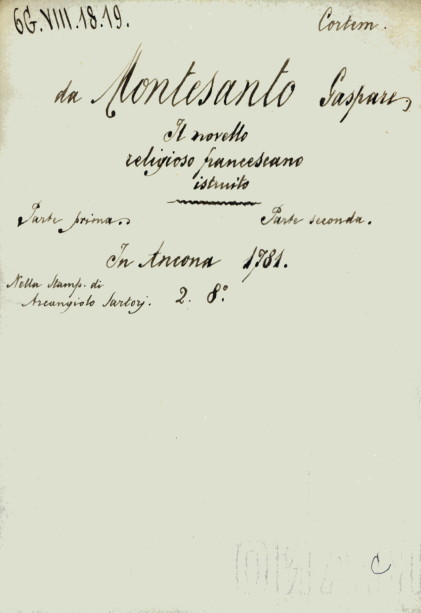 6G.VIII.18.19. Cortem.
da Montesanto Gaspare
Il novello
religioso francescano
istruito
Parte prima. Parte seconda.
In Ancona 1781.
Nella Stamp. di
Arcangiolo Sartorj. 2. 8°
C